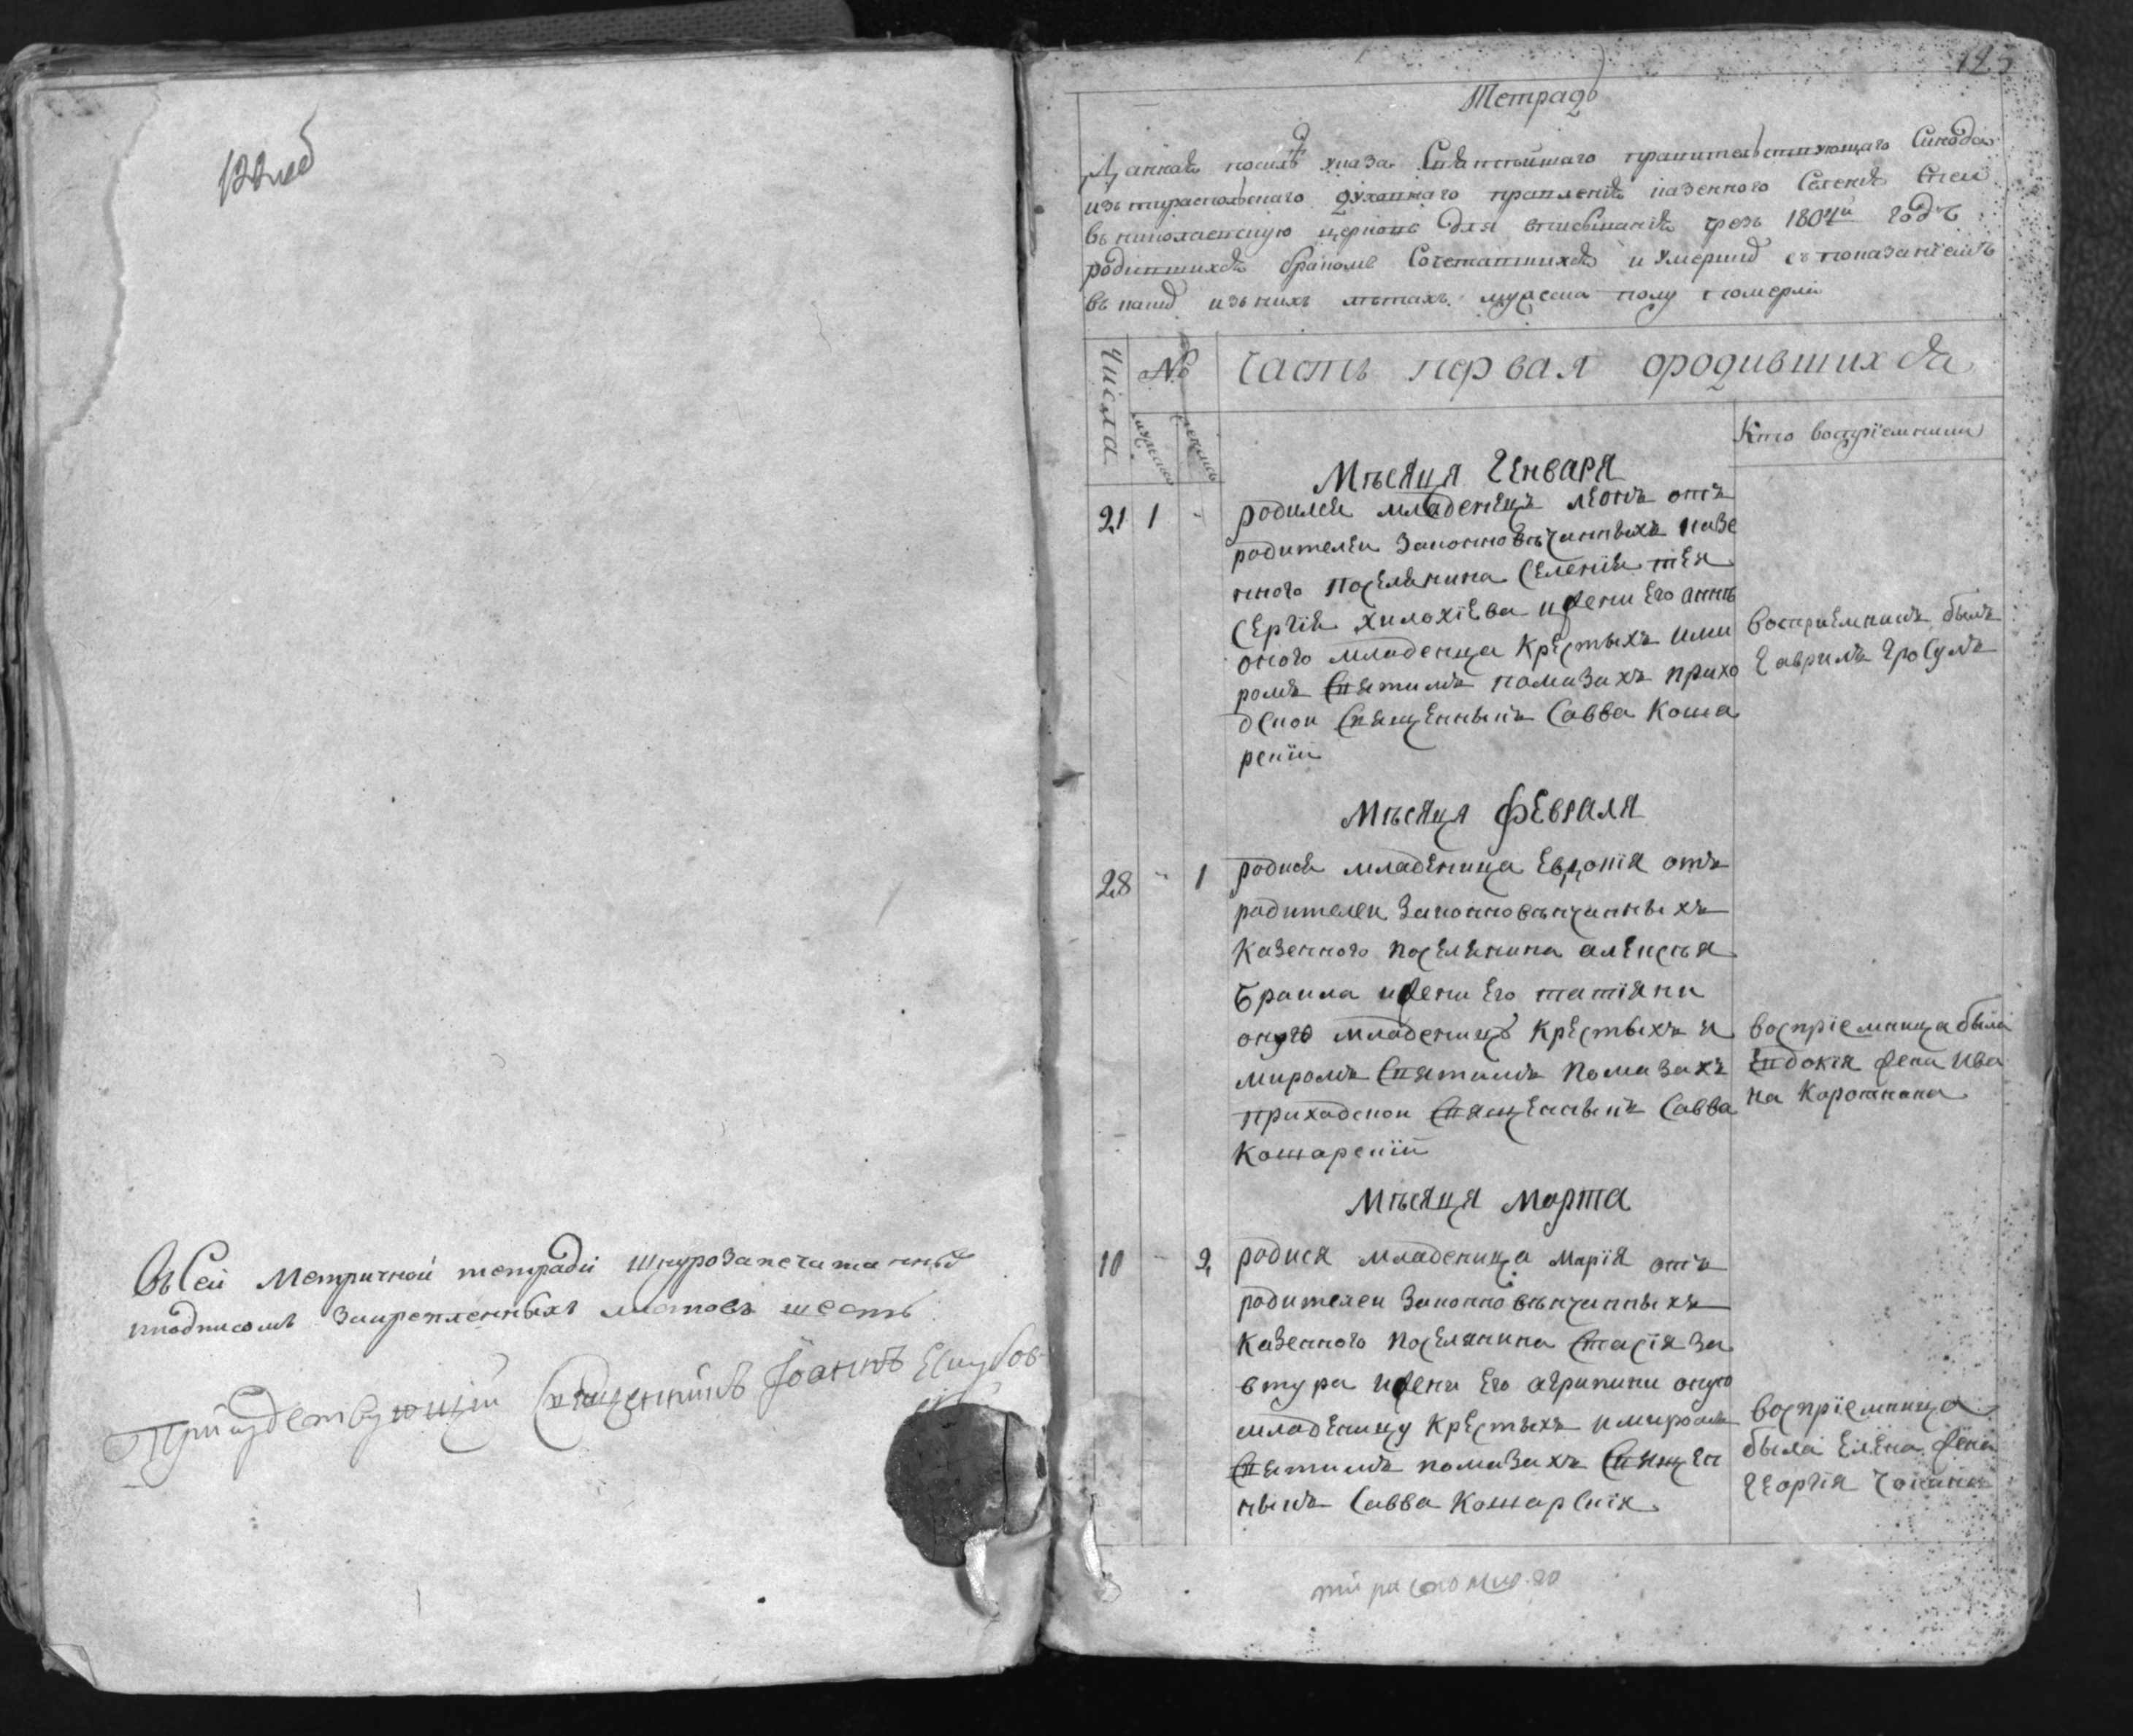 122 об
Въ Сей Метричной тетради шнурозапечатанныхъ
и подписомъ закрепленныхъ листовъ шесть
Присудствующій Священникъ Іоаннъ
123
Тетрадь
Данная посилѣ указа Святѣйшаго правительствующаго Синода
изъ тираспольскаго духовнаго правленія казенного Селенія
въ николаевскую церковь для вписыванія чрезъ 1804й годъ
родившихся бракомъ Сочетавшихся и умершихъ съ показаніемъ
въ какихъ изъ нихъ лѣтахъ мужеска полу померли
Числа
№
мужеска
женска
Часть первая о родившихся
Кто воспріемники
Мѣсяця Генваря
21 1 -
родился младенецъ леонъ отъ
родителей Законновѣнчанныхъ казе
нного поселянина Селенія тея
Сергія Хилохіева и жени Его анны
оного младенца Крестыхъ и ми
ромъ Святимъ помазахъ прихо
дской Священныкъ Савва Коша
рскій
Восприемникъ былъ
Гаврилъ Гросулъ
Мѣсяця Февраля
28 - 1
родися младеница Евдокія отъ
родителей Законновѣнчанныхъ
Казенного поселянина алексѣя
Браила и жени Его татіяни
оную младеницу Крестыхъ и
миромъ Святимъ помазахъ
приходской Священныкъ Савва
Кошарскій
воспріемница была
Евдокія жена Ива
на Коропкана
Мѣсяця Марта
10 - 2
родися младеница Марія отъ
родителей Законновѣнчанныхъ
Казенного поселянина Стасія За
втура и жени Его агрипини оную
младеницу Крестыхъ и миромъ
Святимъ помазахъ Священ
ныкъ Савва Кошарскія
воспріемница
была Елена жена
Георгія Чокана